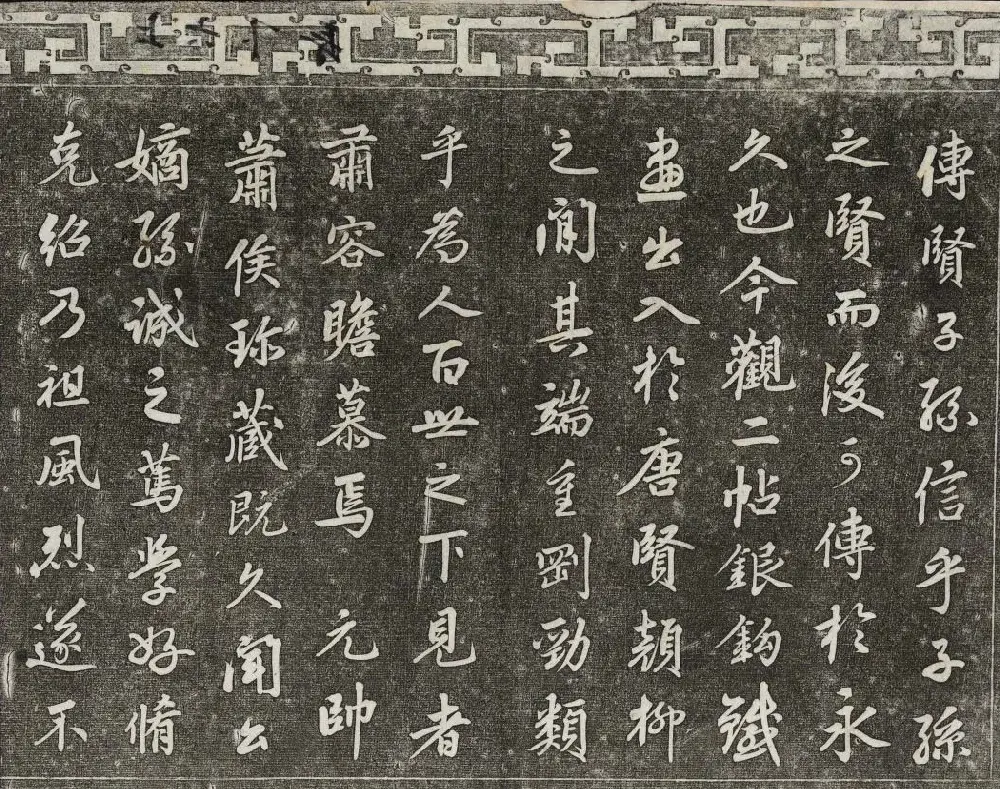 傳賢子孫信乎子孫
之賢而後可傳於永
久也今觀二帖銀鉤鐵
畫出入於唐賢顏柳
之間其端重剛勁類
乎為人百世之下見者
肅容瞻慕焉 元帥
蕭侯珍藏既久聞公
嫡孫誠之篤學好脩
克紹乃祖風烈遂不